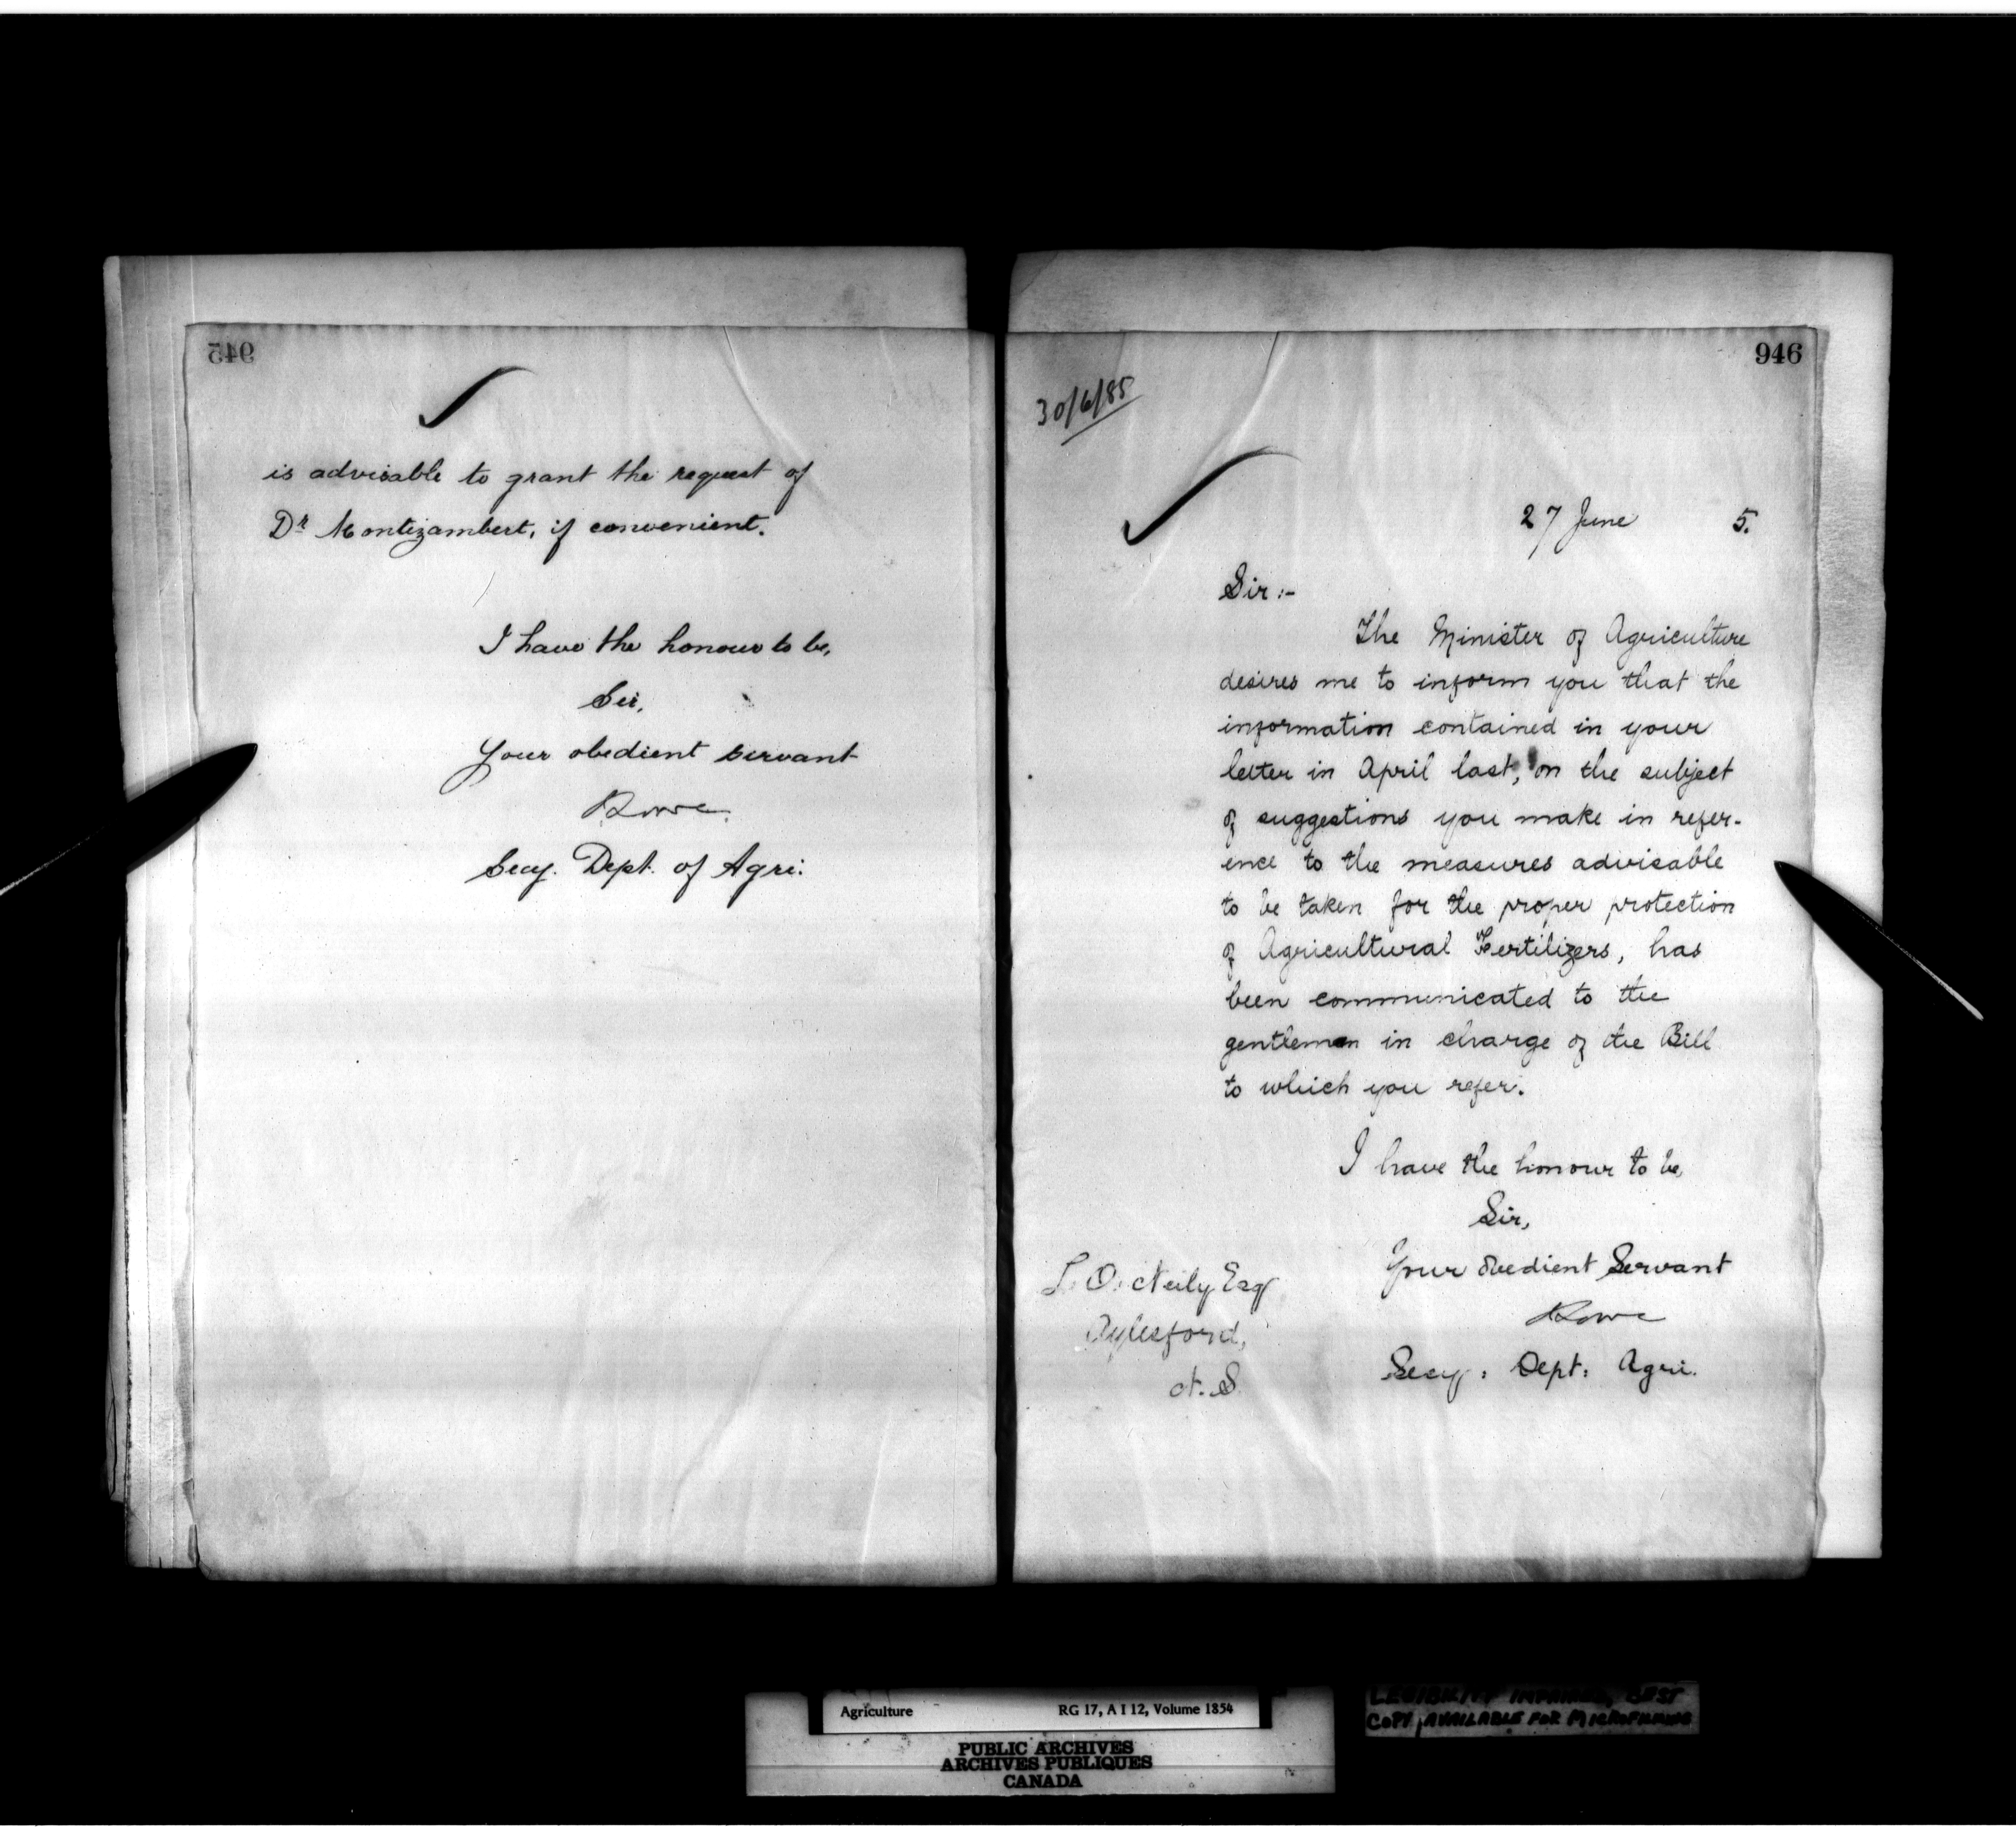 945
is advisable to grant the request of
Dr Montizambert, if convenient.
I have the honour to be,
Sir,
Your obedient servant
Lowe
Secy. Dept. of Agri:
946
30/6/85
27 June 5.
Sir :-
The Minister of Agriculture
desires me to inform you that the
information contained in your
letter in April last, on the subject
of suggestions you make in refer-
ence to the measures advisable
to be taken for the proper protection
of Agricultural Fertilizers, has
been communicated to the
gentlemen in charge of the Bill
to which you refer.
I have the honour to be,
Sir,
Your obedient Servant
Lowe
Secy: Dept: Agri.
L. O. Neily Esq
Aylesford,
N. S.
Agriculture RG 17, A I 12, Volume 1854
PUBLIC ARCHIVES
ARCHIVES PUBLIQUES
CANADA
LEGIBILITY IMPAIRED, BEST
COPY AVAILABLE FOR MICROFILMING